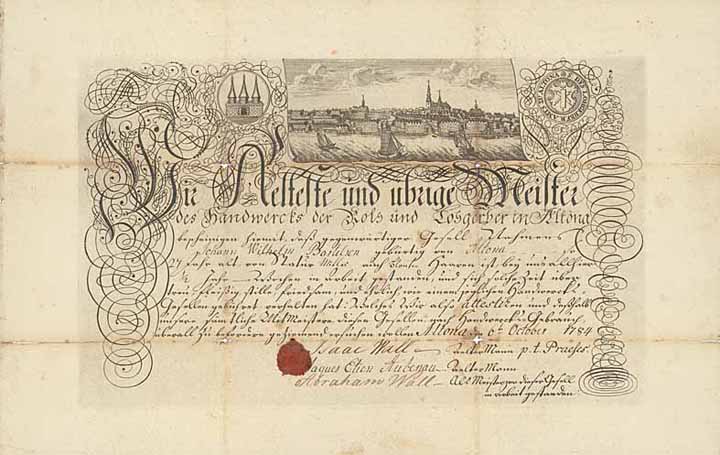 Wir Aelteste und übrige Meister
des Handwercks der Roth und Lohgerber in Altona
bescheinigen hiemit, daß gegenwärtiger Gesell Nahmens
Johann Wilhelm gebürtig von Altona so
27 Jahr alt von Statur mittler auch Haaren ist bey uns allhier
1/2 Jahr Wochen in Arbeit gestanden, und sich solche Zeit über
treu, fleißig, still, friedsam und ehrlich, wie einem jeden Handwercks
Gesellen gebühret verhalten hat: Welches Wir also attestiren und deßfalls
unsere sämtliche MitMeistere diesen Gesellen nach Handwercks Gebrauch
überall zu befördern geziemend ersuchen wollen Altona d 6t October 1784
Isaac Wall Aelter Mann p. t. Præses.
Jaques Aelter Mann
Abraham Wall Als Meister, wo dieser Gesell
in Arbeit gestanden